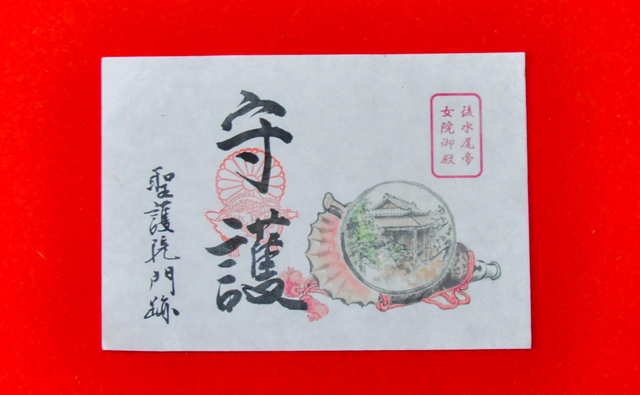 後水尾帝
女院御殿
守護
聖護院門跡